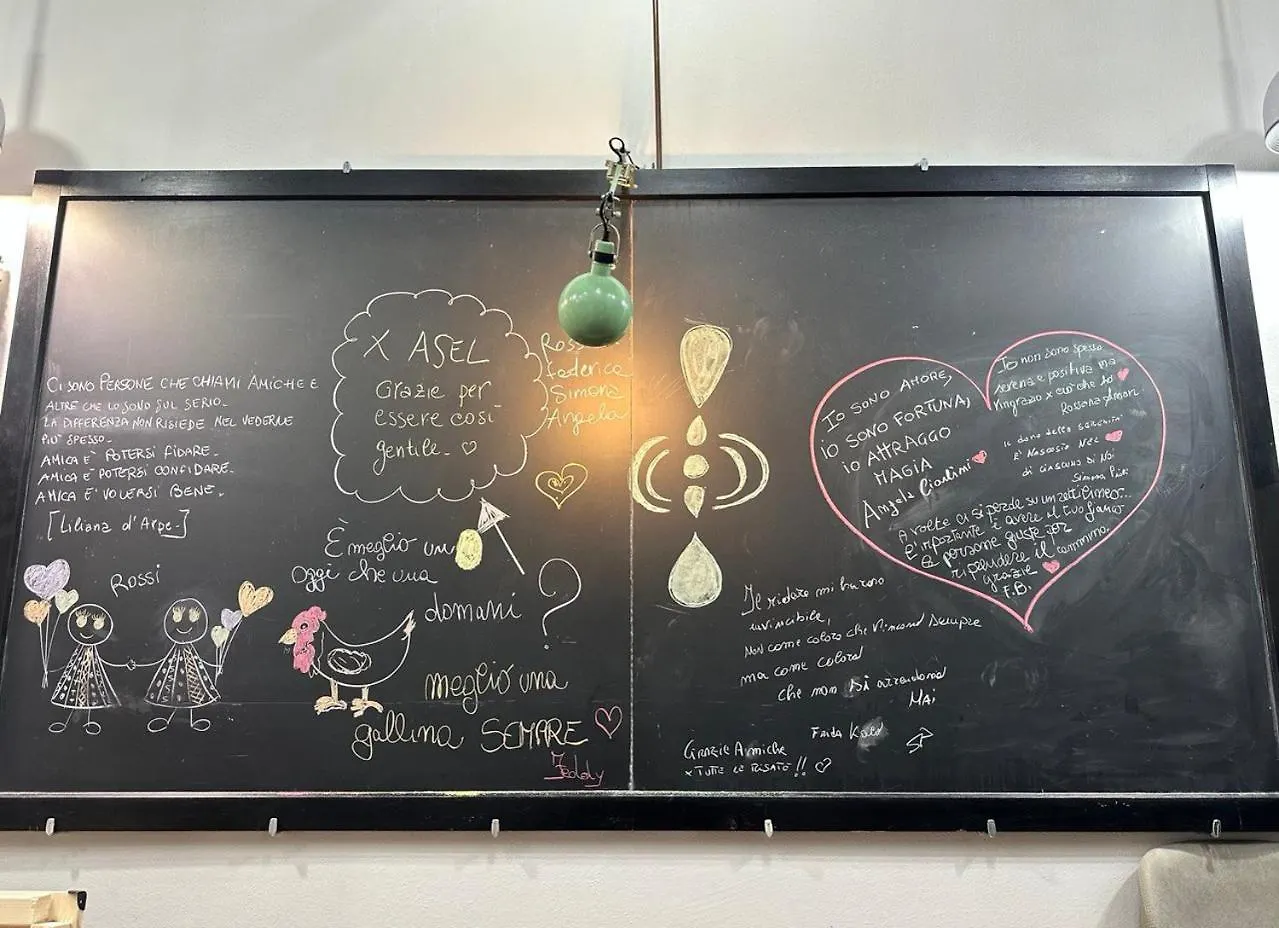 CI SONO PERSONE CHE CHIAMI AMICHE E
ALTRE CHE LO SONO SUL SERIO.
LA DIFFERENZA NON RISIEDE NEL VEDERLE
PIU' SPESSO.
AMICA E' POTERSI FIDARE.
AMICA E' POTERSI CONFIDARE.
AMICA E' VOLERSI BENE.
[Liliana d'Arpe]
ROSSI
X ASEL
Grazie per
essere così
gentile.
Federica
Simona
Angela
È meglio un
oggi che una
domani ?
meglio una
gallina SEMPRE
Feddy
Io SONO AMORE,
io SONO FORTUNA,
io ATTRAGGO
MAGIA
Angela
Io non sono spesso
serena e positiva ma
ringrazio x ciò che ho
Rossana
Il dono della
E' Nascosto Nel
di ciascuno di Noi
Simona
A volte ci si perde su un
E' importante è avere al tuo fianco
le persone giuste per
riprendere il cammino.
grazie
F.B.
Il ridere mi ha reso
invincibile,
Non come coloro che Vincono Sempre
ma come coloro
che non si arrendono
MAI
Frida Kalo
GRAZIE Amiche
x TUTTE LE RISATE!!